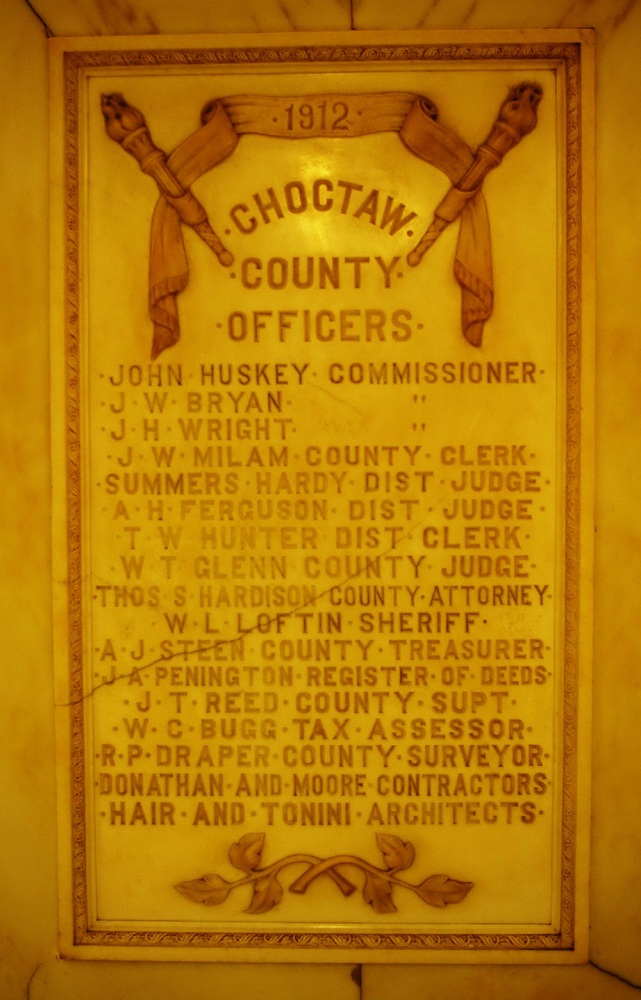 ·1912·
·CHOCTAW·
·COUNTY·
·OFFICERS·
·JOHN·HUSKEY·COMMISSIONER·
·J·W·BRYAN· "
·J·H·WRIGHT· "
·J·W·MILAM·COUNTY·CLERK·
·SUMMERS·HARDY·DIST·JUDGE·
·A·H·FERGUSON·DIST·JUDGE·
·T·W·HUNTER·DIST·CLERK·
·W·T·GLENN·COUNTY·JUDGE·
·THOS·S·HARDISON·COUNTY·ATTORNEY·
·W·L·LOFTIN·SHERIFF·
·A·J·STEEN·COUNTY·TREASURER·
·J·A·PENINGTON·REGISTER·OF·DEEDS·
·J·T·REED·COUNTY·SUPT·
·W·C·BUGG·TAX·ASSESSOR·
·R·P·DRAPER·COUNTY·SURVEYOR·
·DONATHAN·AND·MOORE·CONTRACTORS·
·HAIR·AND·TONINI·ARCHITECTS·